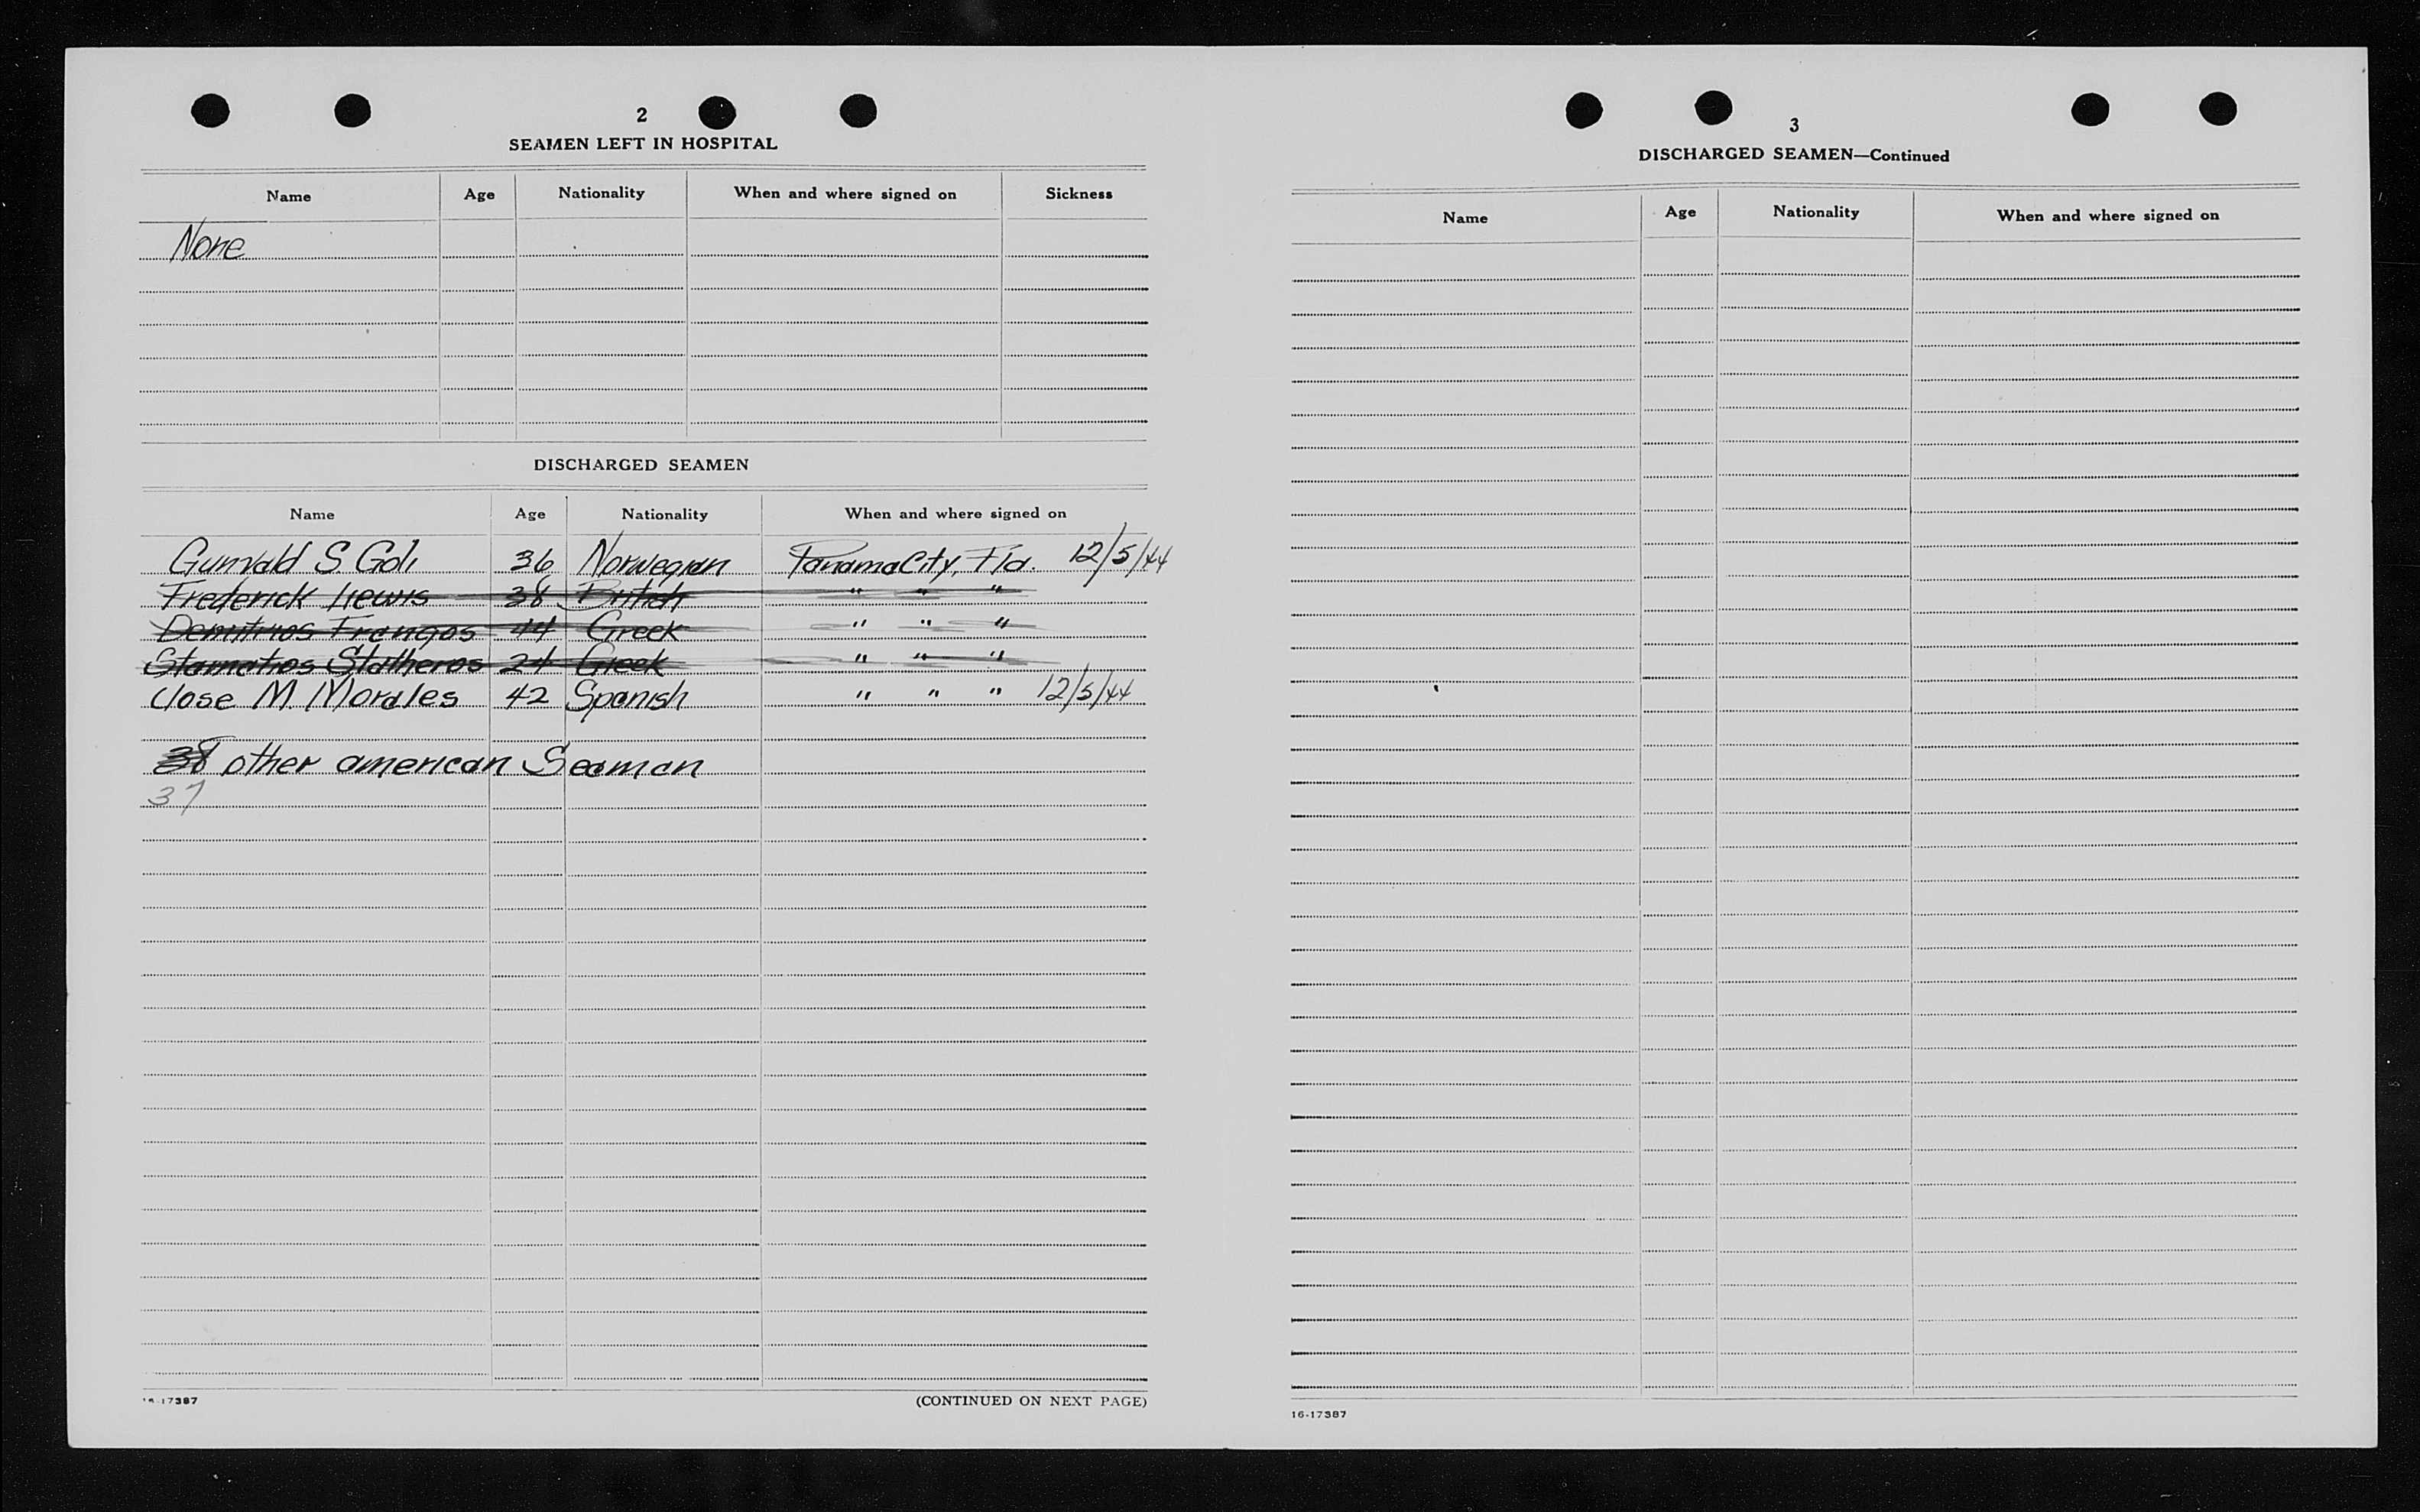 2
SEAMEN LEFT IN HOSPITAL
Name Age Nationality When and where signed on Sickness
None
DISCHARGED SEAMEN
Name Age Nationality When and where signed on
Gunvald S Goli 36 Norwegian Panama City, Fla. 12/5/44
Frederick Liewis 38 British " " "
Demitrios Frangos 44 Greek " " "
Stamatios Statheros 24 Greek " " "
Jose M. Morales 42 Spanish " " " 12/5/44
38 other american Seaman
37
16-17387 (CONTINUED ON NEXT PAGE)
3
DISCHARGED SEAMEN—Continued
Name Age Nationality When and where signed on
16-17387